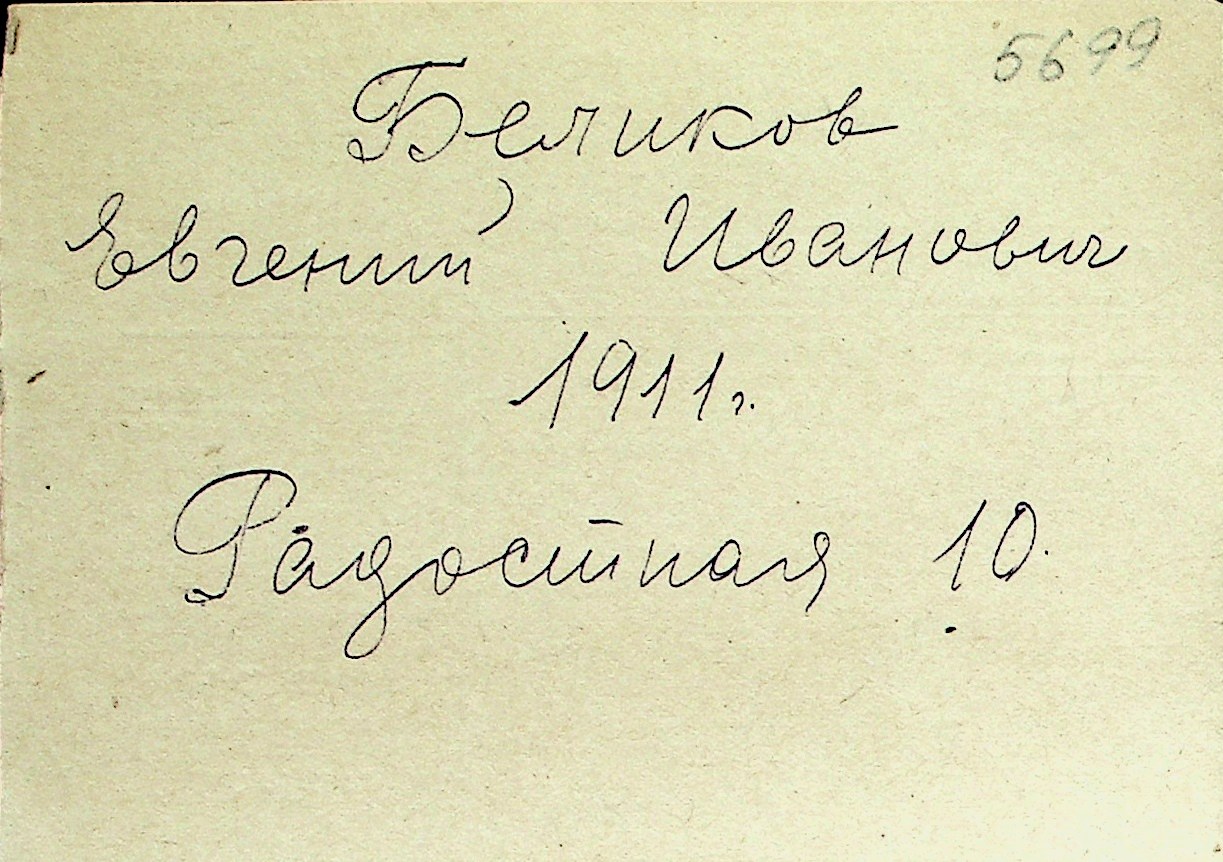 5699
Беликов
Евгений Иванович
1911г.
Радостная 10.